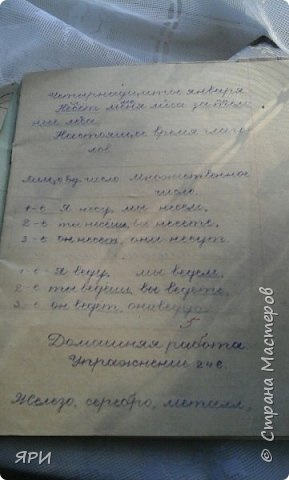 Четырнадцатое января
Несёт меня лиса за тёмные леса
Настоящее время глагола
Лица ед. число Множественное
число.
1-е Я несу, мы несём,
2-е ты несёшь, вы несёте,
3-е он несёт, они несут.
1-е Я веду, мы ведём,
2-е ты ведёшь, вы ведёте,
3-е он ведёт, они ведут
5
Домашняя работа
Упражнение
Железо, серебро, металл,
ЯРИ
© Страна Мастеров